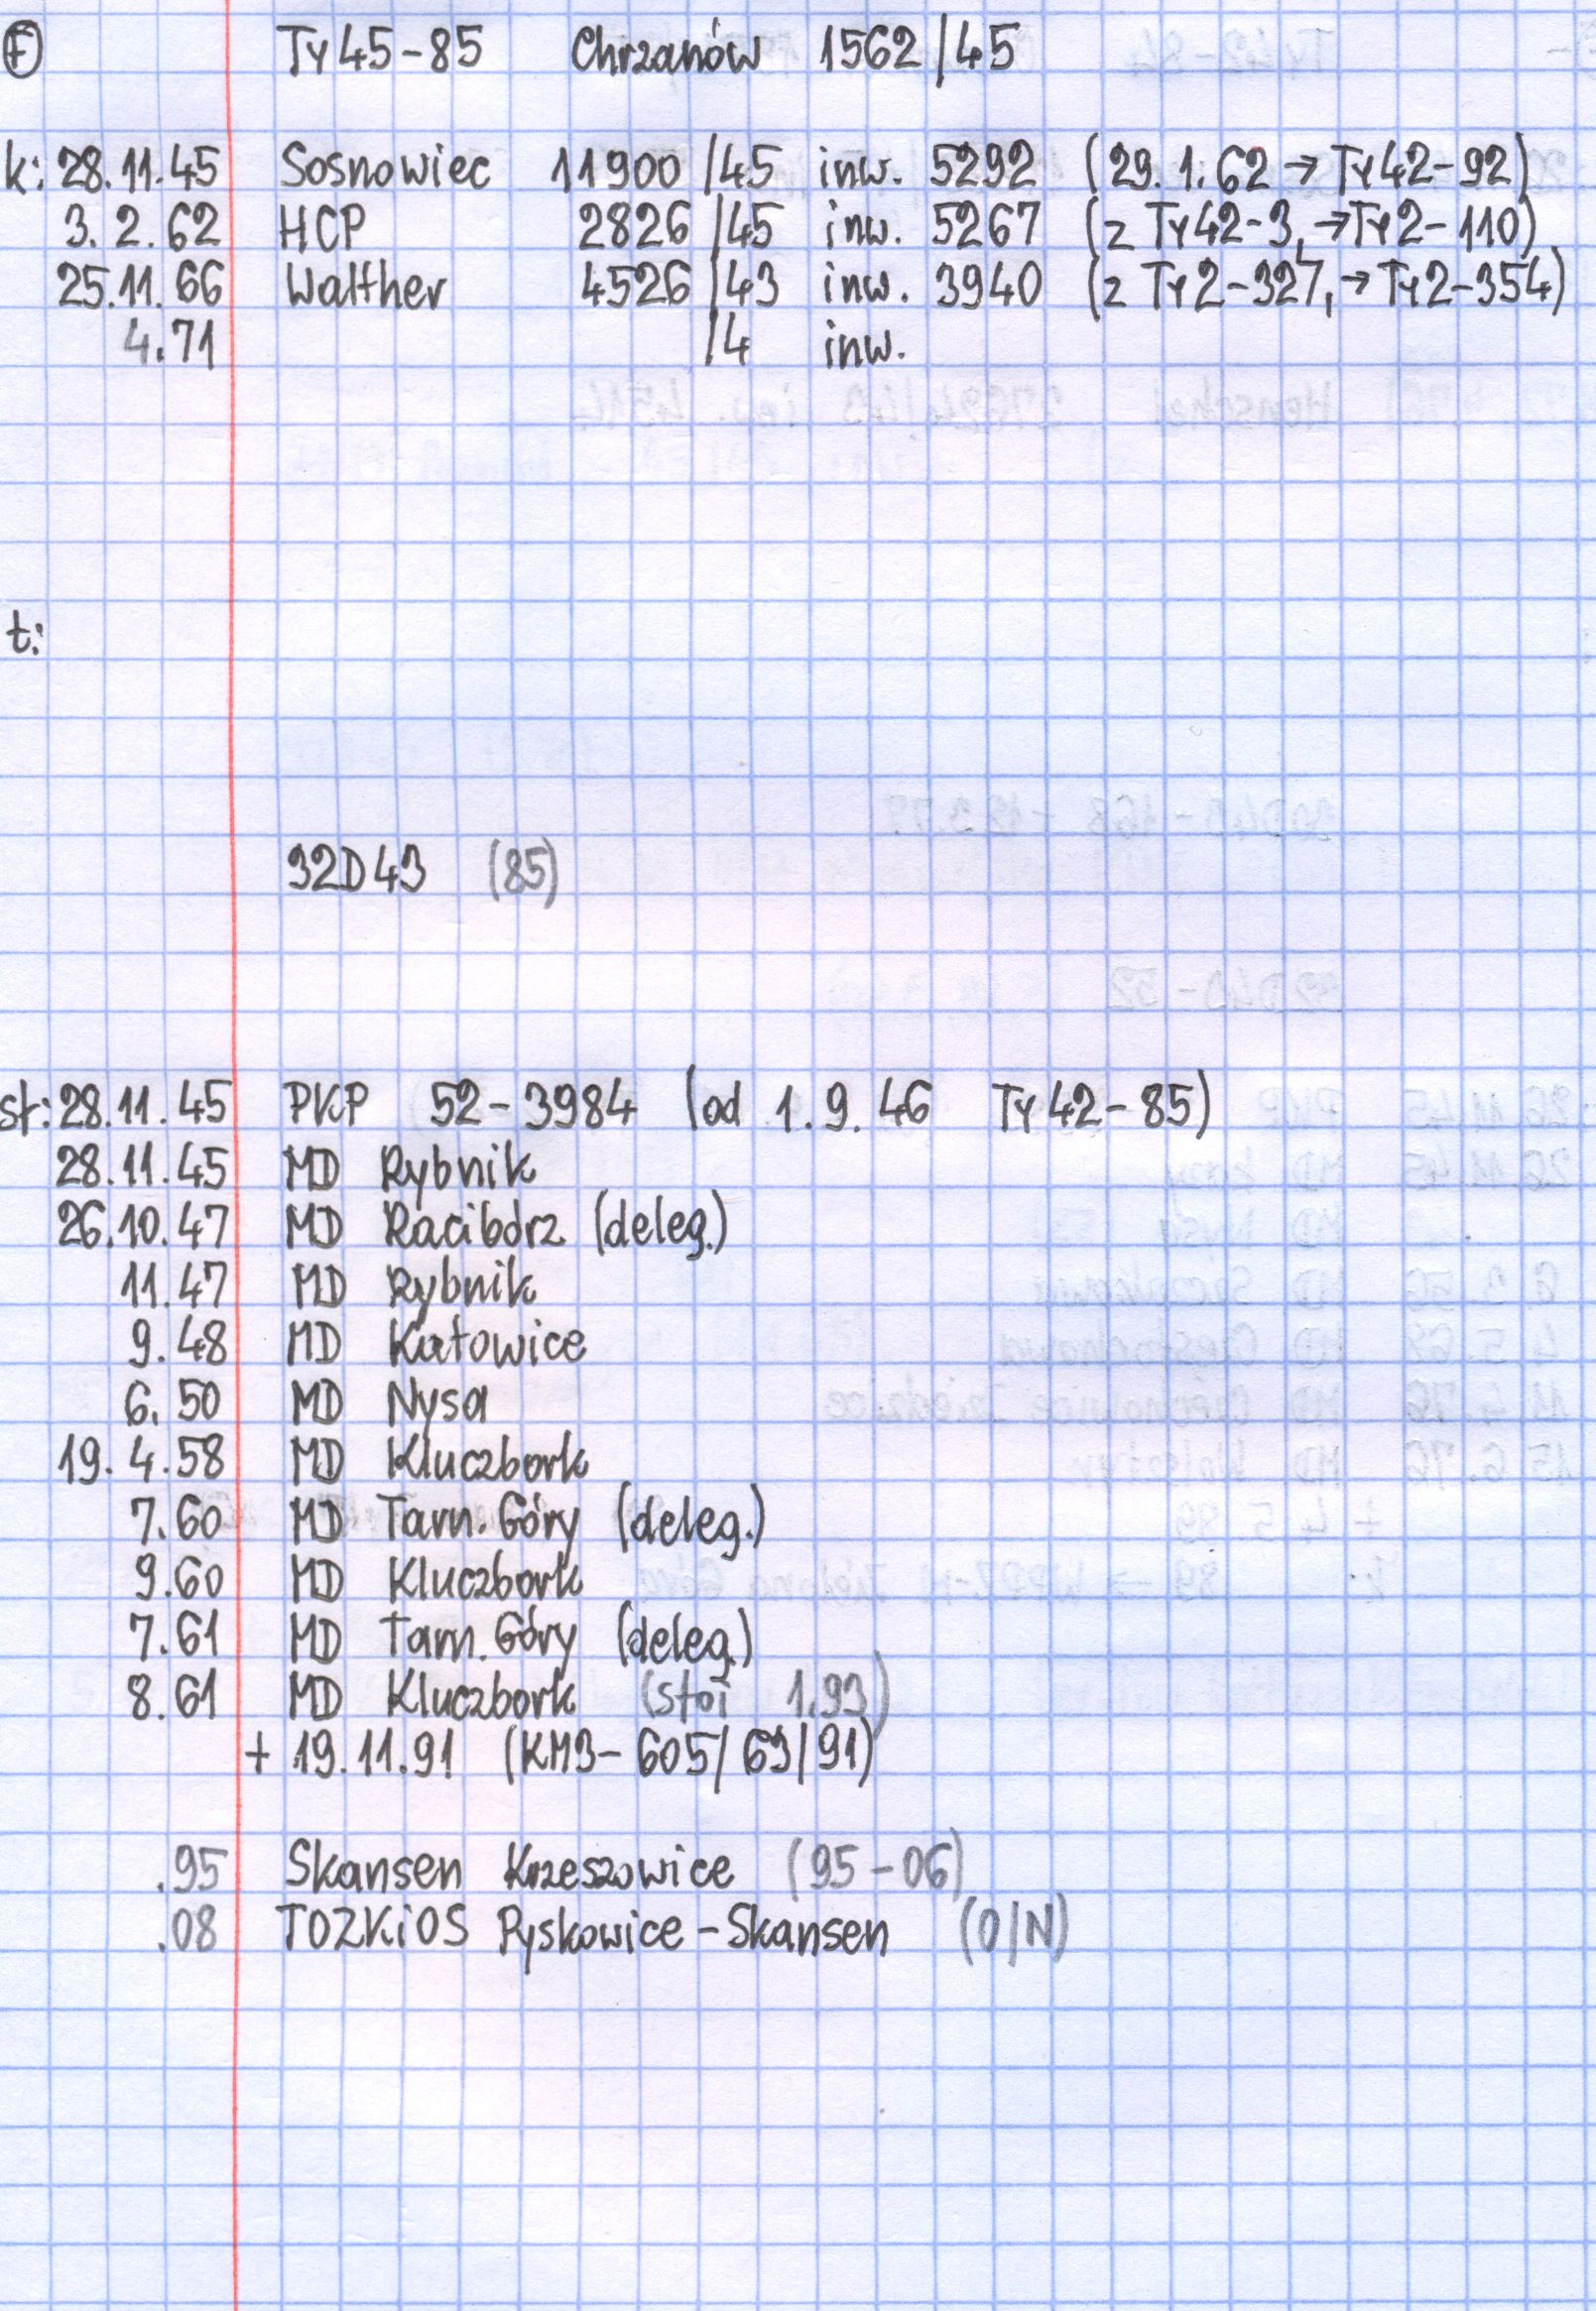 F Ty45-85 Chrzanów 1562/45
k: 28.11.45 Sosnowiec 11900/45 inw. 5292 (29.1.62 → Ty42-92)
3.2.62 HCP 2826/45 inw. 5267 (z Ty42-3, →Ty2-110)
25.11.66 Walther 4526/43 inw. 3940 (z Ty2-327, →Ty2-354)
4.71 /4 inw.
t:
32D43 (85)
st: 28.11.45 PKP 52-3984 (od 1.9.46 Ty42-85)
28.11.45 MD Rybnik
26.10.47 MD Racibórz (deleg.)
11.47 MD Rybnik
9.48 MD Katowice
6.50 MD Nysa
19.4.58 MD Kluczbork
7.60 MD Tarn. Góry (deleg.)
9.60 MD Kluczbork
7.61 MD Tarn. Góry (deleg.)
8.61 MD Kluczbork (stoi 1.93)
+ 19.11.91 (KM3-605/63/91)
.95 Skansen Krzeszowice (95-06)
.08 TOZKiOS Pyskowice-Skansen (O/N)